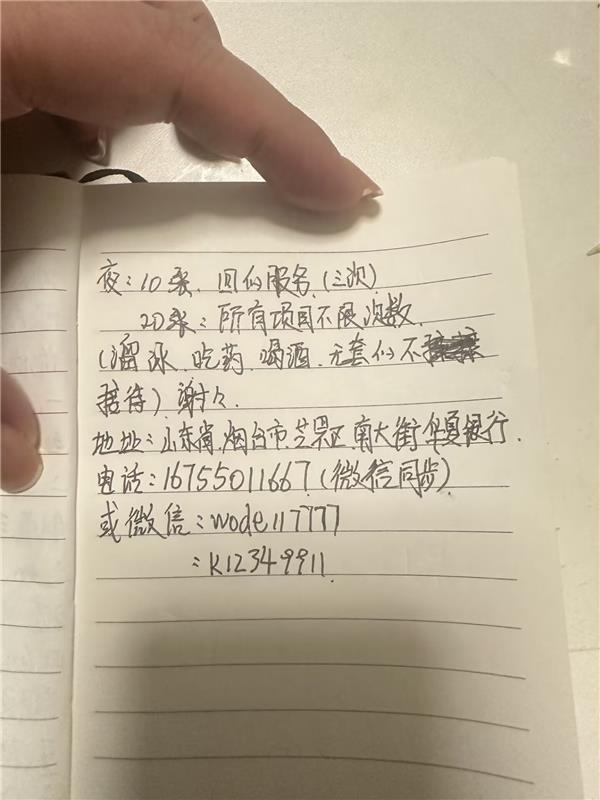 夜：10张．回份服务．(三次)
20张：所有项目不限次数．
(溜冰．吃药．喝酒．无套的不
接待）．谢谢．
地址：山东省．烟台市．芝罘区．南大街．华夏银行．
电话：16755011667．(微信同步)
或微信：wode117777
：k12349911．